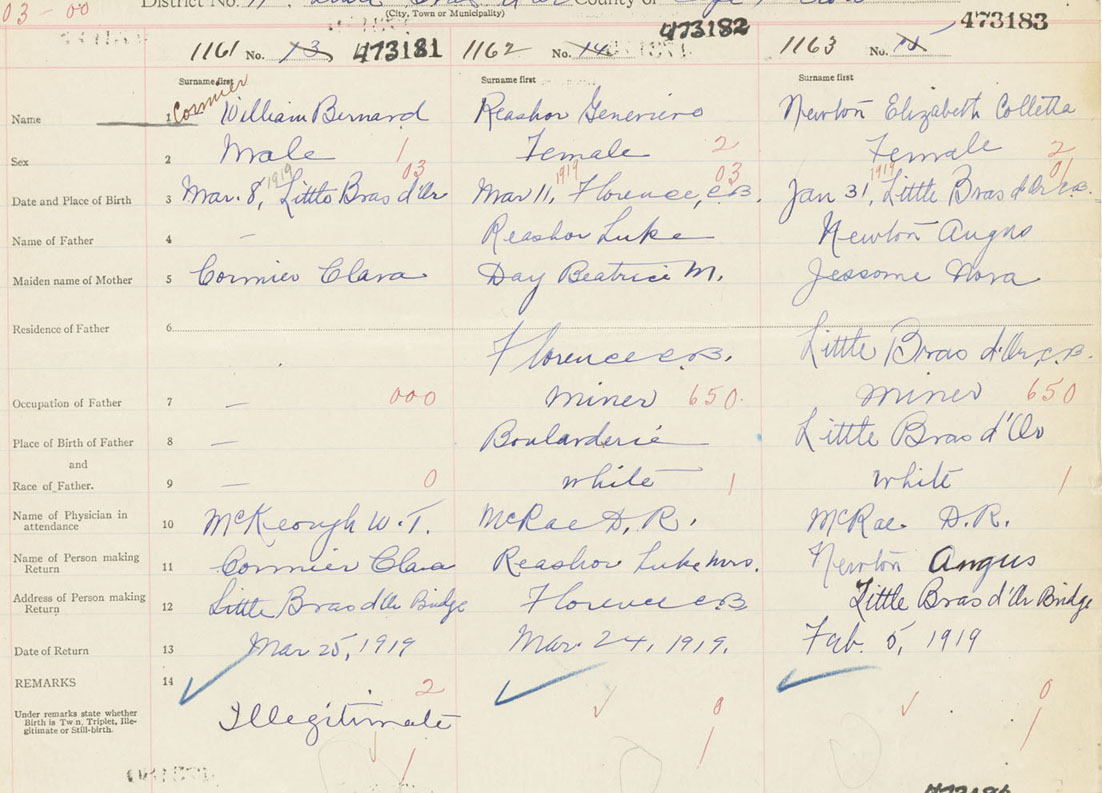 03-00 District No. 11. County of
(City, Town or Municipality)
1161 No. 13 473181 1162 No. 14 473182 1163 No. 15 473183
Surname first Surname first Surname first
Name 1 Cormier William Bernard Reashor Genevieve Newton Elizabeth Colletta
Sex 2 Male 1 Female 2 Female 2
1919 03 1919 03 1919 01
Date and Place of Birth 3 Mar. 8, Little Bras d'Or Mar 11, Florence, C.B. Jan 31, Little Bras d'Or C.B.
Name of Father 4 — Reashor Luke Newton Angus
Maiden name of Mother 5 Cormier Clara Day Beatrice M. Jessome Nora
Residence of Father 6 Florence C.B. Little Bras d'Or, C.B.
Occupation of Father 7 — 000 Miner 650. Miner 650
Place of Birth of Father 8 — Boularderie Little Bras d'Or
and
Race of Father. 9 — 0 White 1 White 1
Name of Physician in
attendance 10 McKeough W.T. McRae D.R. McRae D.R.
Name of Person making
Return 11 Cormier Clara Reashor Luke Mrs. Newton Angus
Address of Person making
Return 12 Little Bras d'Or Bridge Florence C.B. Little Bras d'Or Bridge
Date of Return 13 Mar 25, 1919 Mar. 24, 1919. Feb. 5, 1919
REMARKS 14
Under remarks state whether
Birth is Twin, Triplet, Ille-
gitimate or Still-birth.
2 0 0
Illegitimate
1 1 1